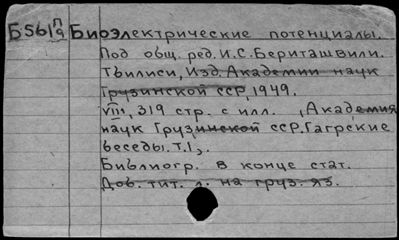 Б561 п/9 Биоэлектрические потенциалы.
Под общ. ред. И.С. Бериташвили.
Тбилиси, Изд. Академии наук
Грузинской ССР, 1949.
VIII, 319 стр. с илл. , Академия
наук Грузинской ССР. Гагрские
беседы. Т.I,.
Библиогр. в конце стат.
Доб. тит. л. на груз. яз.